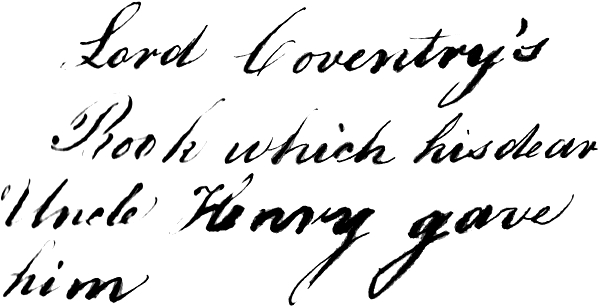 Lord Coventry's
Book which his dear
Uncle Henry gave
him